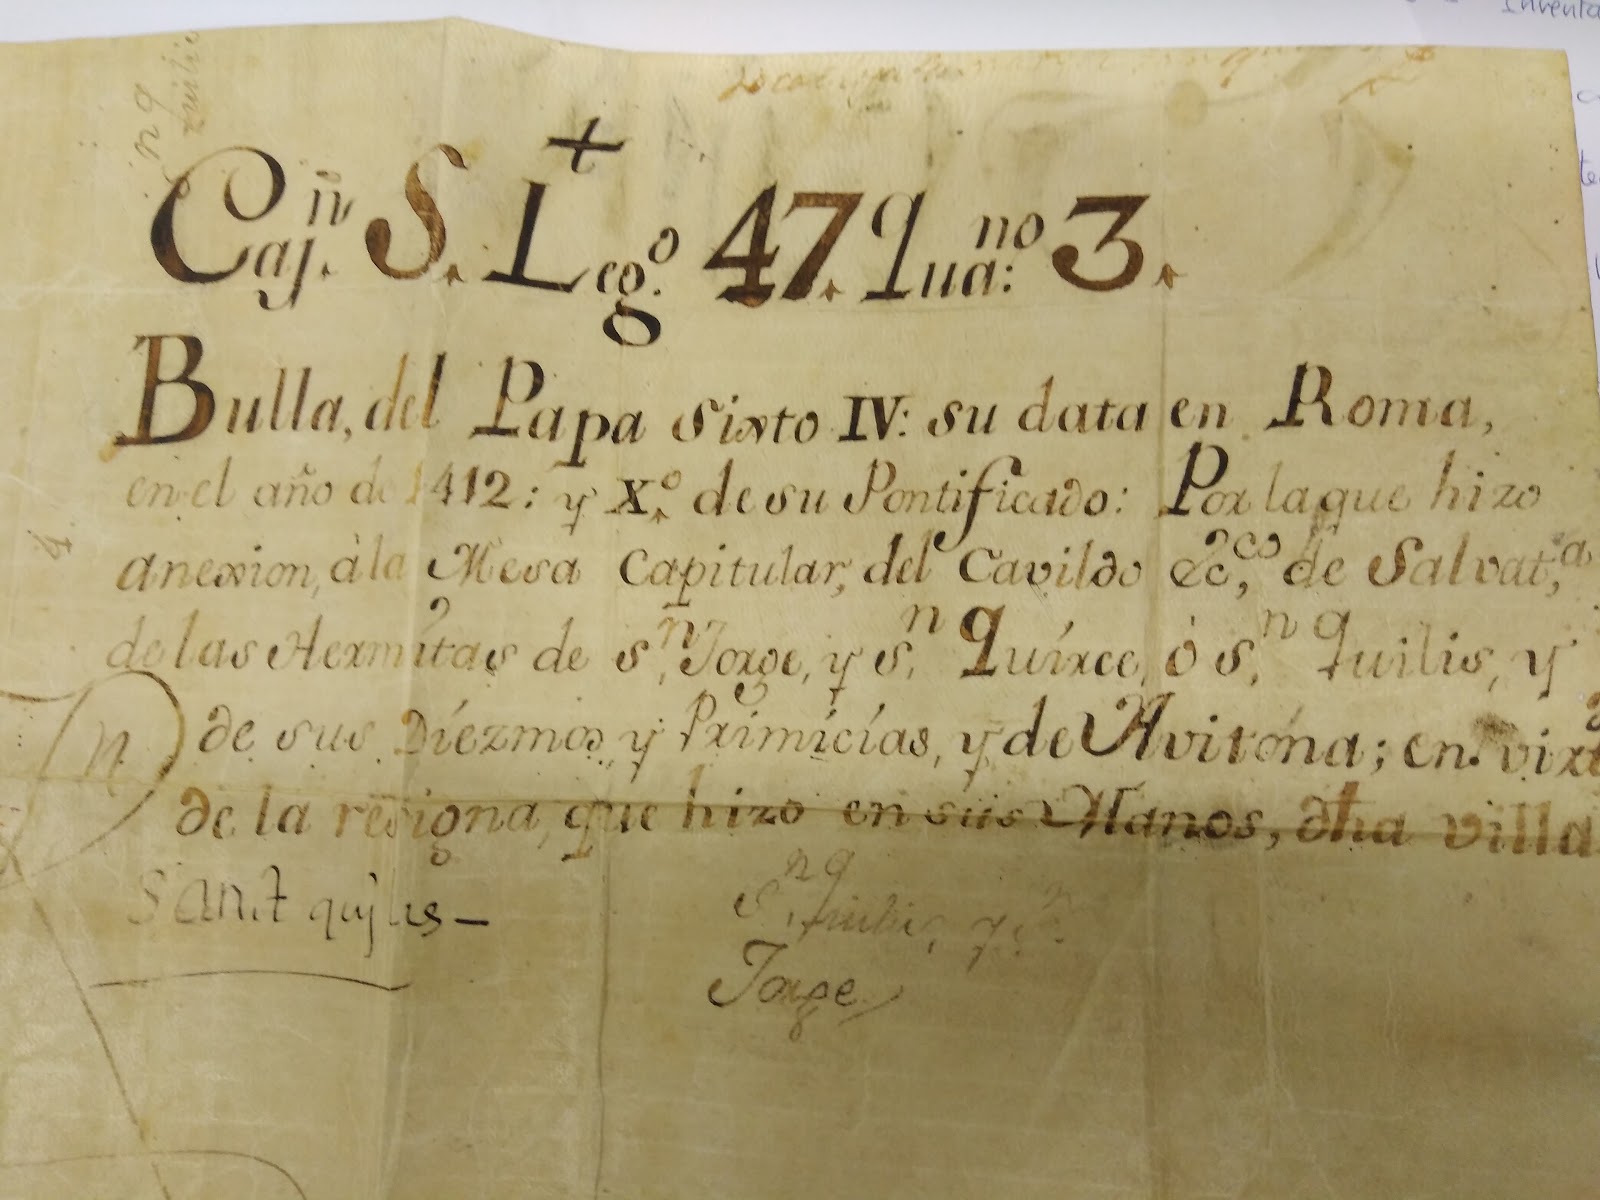 Inventa
n q
quilis
Caj.ñ S. Leg.o 47. qua:no 3.
Bulla, del Papa Sixto IV: su data en Roma,
en el año de 1412: y X.o de su Pontificado: Por la que hizo
anexion, à la Mesa Capitular, del Cavildo Ec,co de Salvat,a
de las Hermitas de S,n Jorge, y S,n Quírce, ó S,n Quilis, y
de sus Díezmos, y Primicías, y de Avitóna; en virt
de la resigna, que hizo en sus Manos, dha villa
Sant quylis —
S,n Quilis, y S.n
Jorge
n